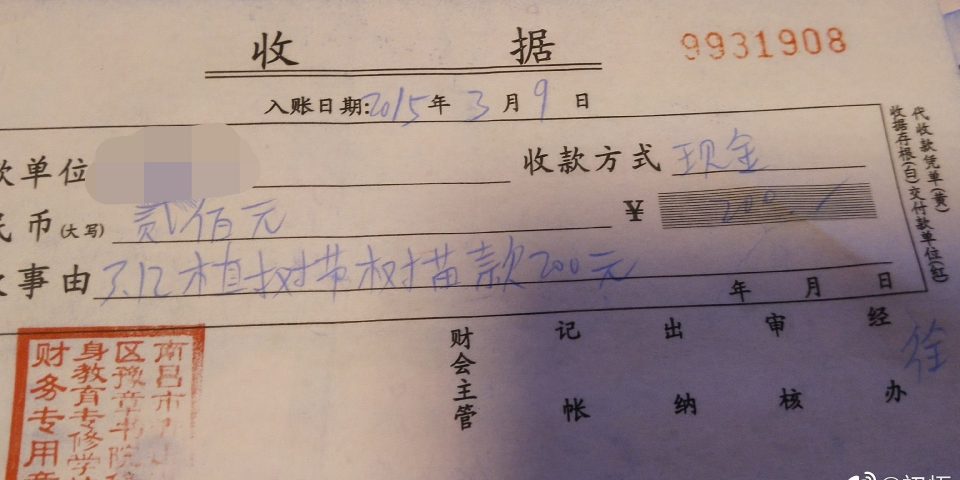 收 据 9931908
入账日期: 2015 年 3 月 9 日
款单位 收款方式 现金
民币(大写) 贰佰元 ¥ 200
事由 3.12植树节树苗款200元
年 月 日
代收款凭单(黄)
收据存根(白)交付款单位(红)
财会主管 记帐 出纳 审核 经办 徐
南昌市
区豫章书院
身教育专修学
财务专用章